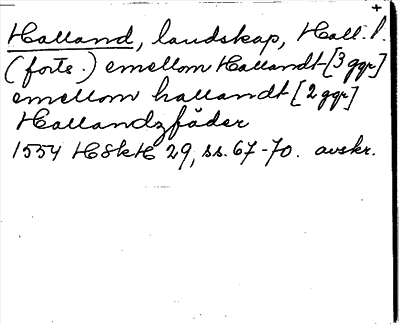 Halland, landskap, Hall. l.
(forts.) emellom Hallandt [3 ggr]
emellom hallandt [2 ggr]
Hallandzfåder
1554 HSkH 29, ss. 67-70. avskr.